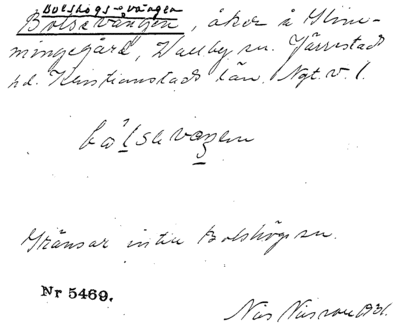 Bolshögs-vången
Bolsevången, åker å Glim-
mingegård, Vallby sn. Järrestads
hd. Kristianstads län. Ngt. v. l.
bo'lsevaŋen
Gränsar intill Bolshögs sn.
Nr 5469.
Nils 1931.